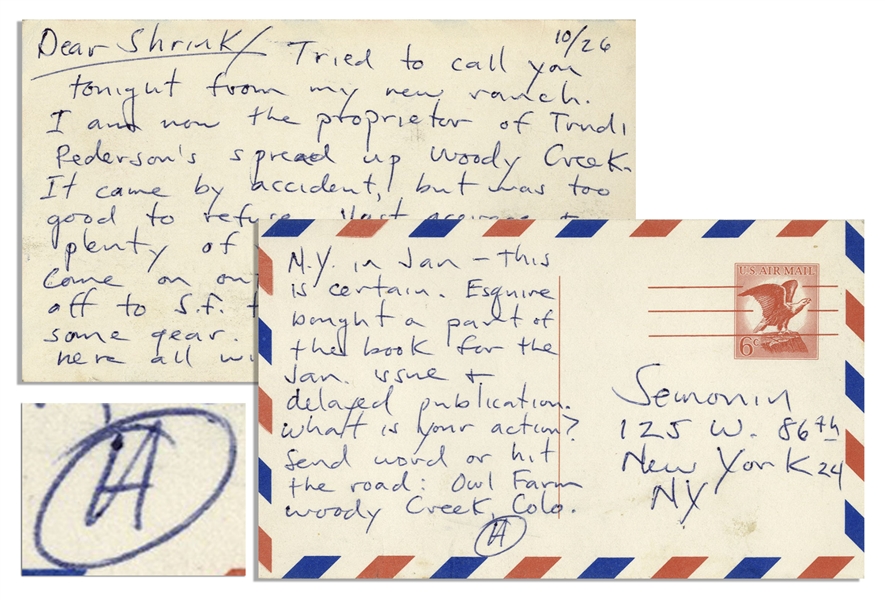 10/26
Dear Shrink/ Tried to call you
tonight from my new ranch.
I am now the proprietor of Trudi
Pederson's spread up Woody Creek.
It came by accident, but was too
good to refuse.
plenty of
Come on out
off to S.F.
some gear.
here all
N.Y. in Jan – this
is certain. Esquire
bought a part of
the book for the
Jan. issue +
delayed publication.
What is your action?
Send word or hit
the road: Owl Farm
Woody Creek, Colo.
H
U.S. AIR MAIL
6c
Semonin
125 W. 86th
New York 24
NY
H